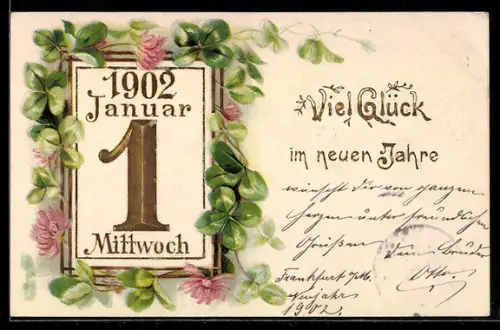 1902
Januar
1
Mittwoch
Viel Glück
im neuen Jahre
wünscht Dir von ganzem
Herzen unter freundlichen
Grüßen Dein Bruder
Otto.
Frankfurt a/M.
Neujahr
1902.